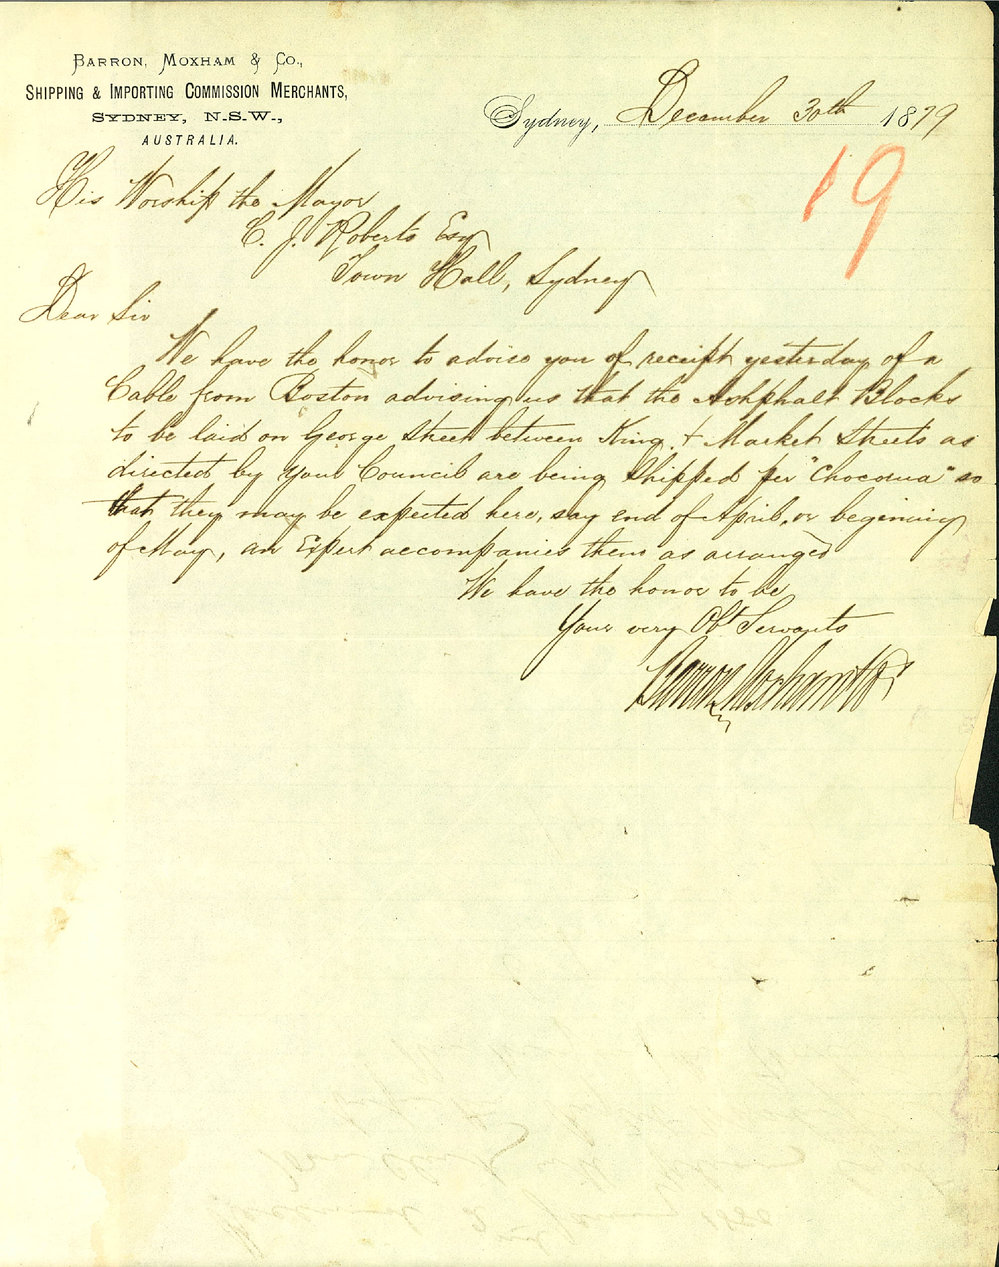 BARRON, MOXHAM & CO.,
SHIPPING & IMPORTING COMMISSION MERCHANTS,
SYDNEY, N.S.W.,
AUSTRALIA.
Sydney, December 30th 1879
19
His Worship the Mayor
C. J. Roberts Esq
Town Hall, Sydney
Dear Sir
We have the honor to advise you of receipt yesterday of a
Cable from Boston advising us that the Ashphalt Blocks
to be laid on George Street between King & Market Streets as
directed by your Council are being Shipped per "Chocorua" so
that they may be expected here, say end of April, or beginning
of May, an Expert accompanies them as arranged
We have the honor to be
Your very Obt Servants
Barron Moxham & Co